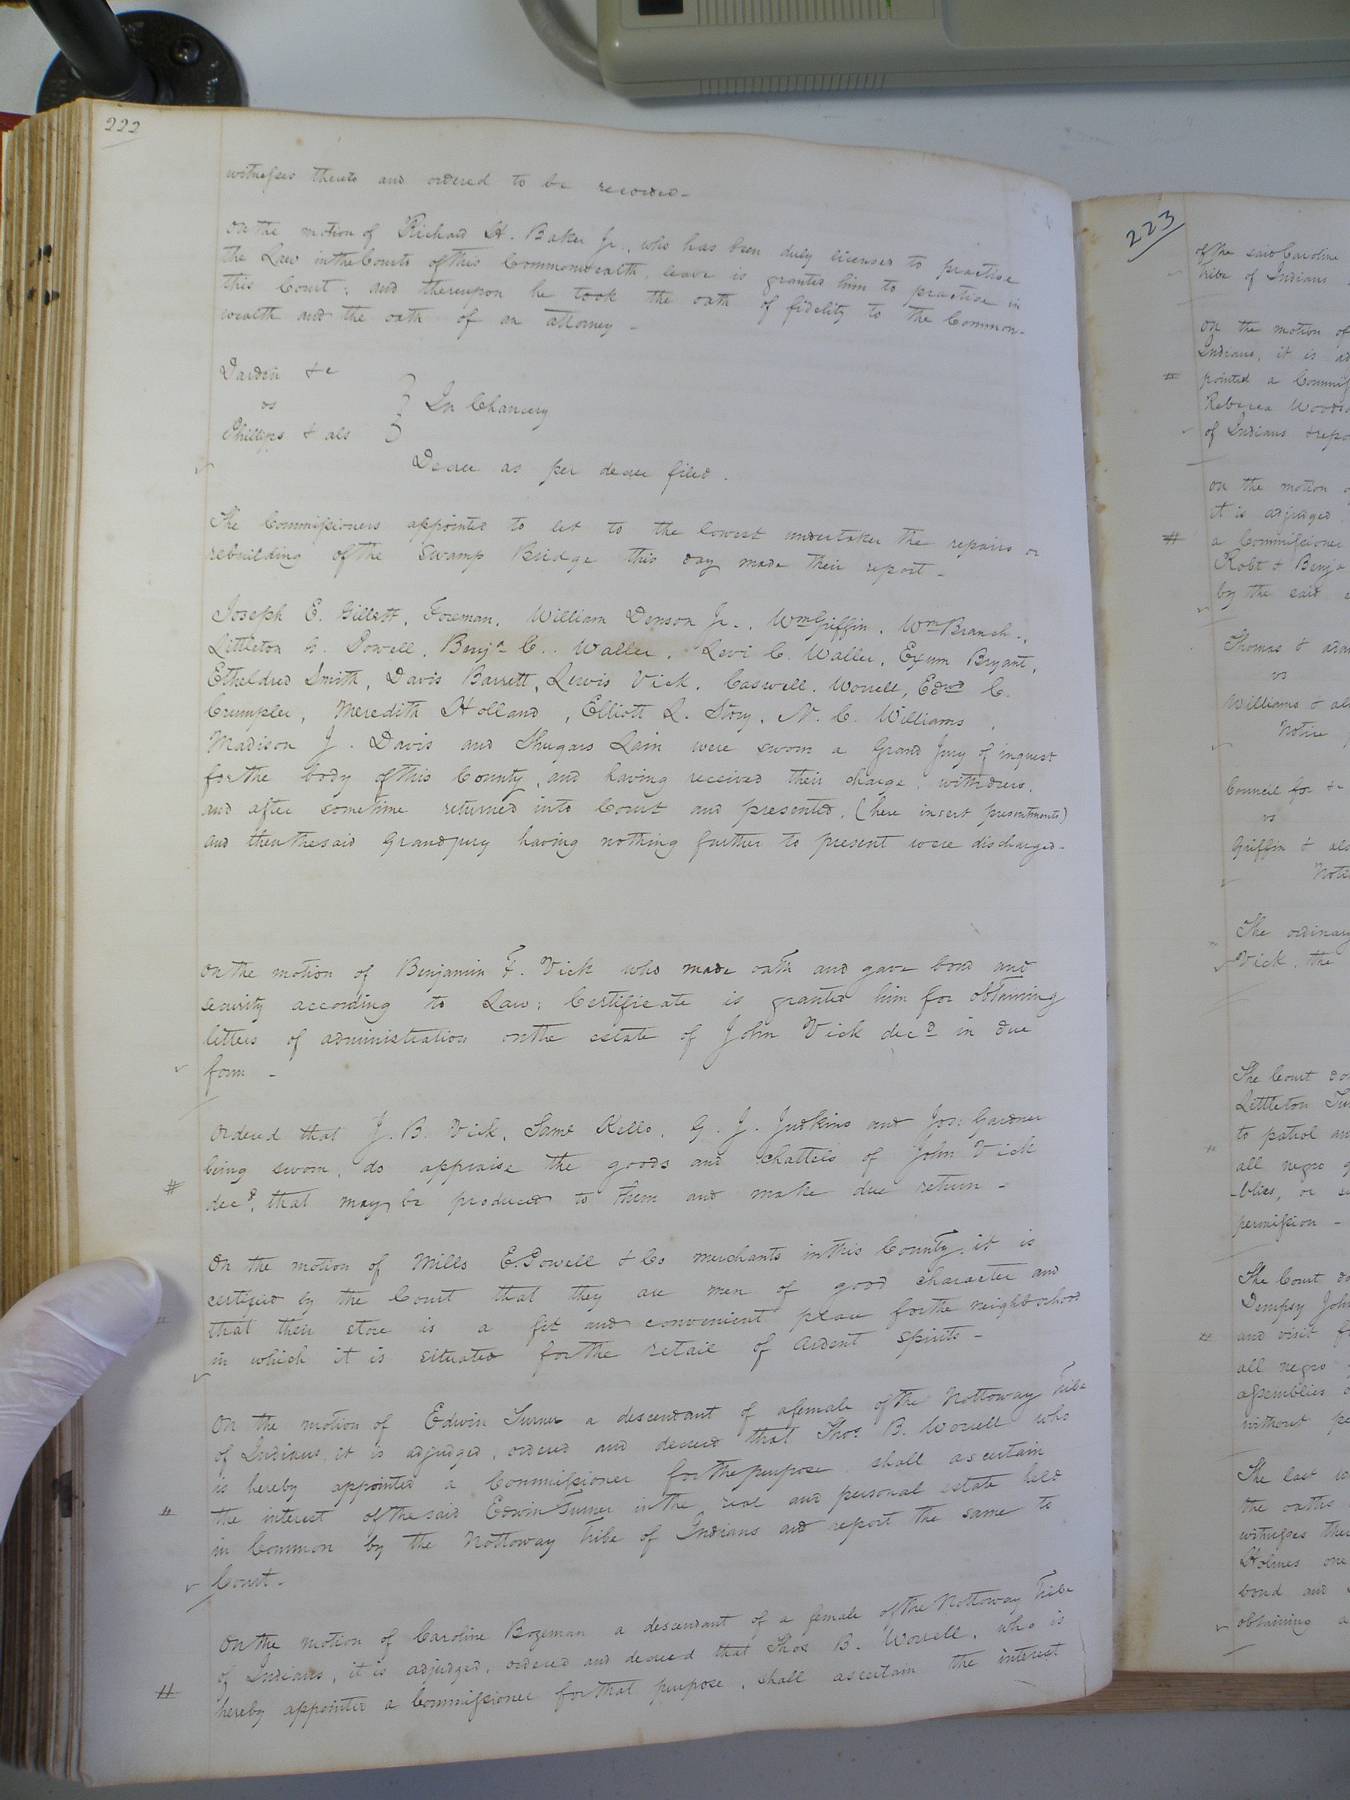 222
witnesses thereto and ordered to be recorded-
On the motion of Richard H. Baker Jr. who has been duly licensed to practise
the Law in the Courts of this Commonwealth, leave is granted him to practise in
this Court; and thereupon he took the oath of fidelity to the Common-
wealth and the oath of an attorney -
Darden &c
vs
In Chancery
Phillips & als
Decree as per decree filed.
The Commissioners appointed to let to the lowest undertaker the repairs or
rebuilding of the Swamp Bridge this day made their report -
Joseph E. Gillett, Foreman, William Denson Jr., Wm Griffin, Wm Branch,
Littleton Powell, Benja C. Waller, Levi C. Waller, Exum Bryant,
Etheldred Smith, Davis Barrett, Lewis Vick, Caswell Worrell, Edwd C.
Crumpler, Meredith Holland, Elliott L. Story, N. C. Williams,
Madison J. Davis and Shugars Lain were sworn a Grand Jury of inquest
for the body of this County, and having received their charge, withdrew,
and after sometime returned into Court and presented, (here insert presentments)
and then the said Grand jury having nothing further to present were discharged-
On the motion of Benjamin F. Vick who made oath and gave bond and
security according to Law; Certificate is granted him for obtaining
letters of administration on the estate of John Vick decd in due
form -
Ordered that J. B. Vick, Saml Kello, G. J. Judkins and Jos: Gardner
being sworn, do appraise the goods and chattels of John Vick
# decd, that may be produced to them and make due return -
On the motion of Mills E. Powell & Co merchants in this County, it is
certified by the Court that they are men of good character and
that their store is a fit and convenient place for the neighborhood
in which it is situated for the retail of ardent spirits -
On the motion of Edwin Turner a descendant of a female of the Nottoway Tribe
of Indians, it is adjudged, ordered and decreed that Thos B. Worrell who
is hereby appointed a Commissioner for the purpose shall ascertain
the interest of the said Edwin Turner in the real and personal estate held
in Common by the Nottoway Tribe of Indians and report the same to
Court -
On the motion of Caroline Bozeman a descendant of a female of the Nottoway Tribe
of Indians, it is adjudged, ordered and decreed that Thos B. Worrell, who is
# hereby appointed a Commissioner for that purpose, shall ascertain the interest
223
of the said Caroline
tribe of Indians
On the motion of
Indians, it is
# pointed a
Rebecca
of Indians
On the motion
it is adjudged
# a Commissioner
Robt & Benja
by the said
Thomas &
vs
Williams &
Notice
Council for &c
vs
Griffin &
The ordinary
Vick, the
The Court
Littleton
to patrol
all negro
-blies, or
permission -
The Court
Dempsy
and visit
all negro
assemblies
without
The last
the oaths
witnesses
Holmes one
bond and
obtaining a